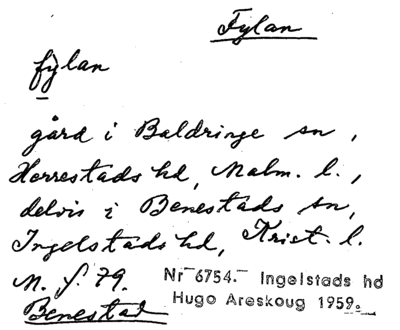 Fylan
fỳlan
gård i Baldringe sn,
Herrestads hd, Malm. l.,
delvis i Benestads sn,
Ingelstads hd, Krist. l.
M. f. 79.
Nr 6754. Ingelstads hd
Hugo Areskoug 1959.
Benestad